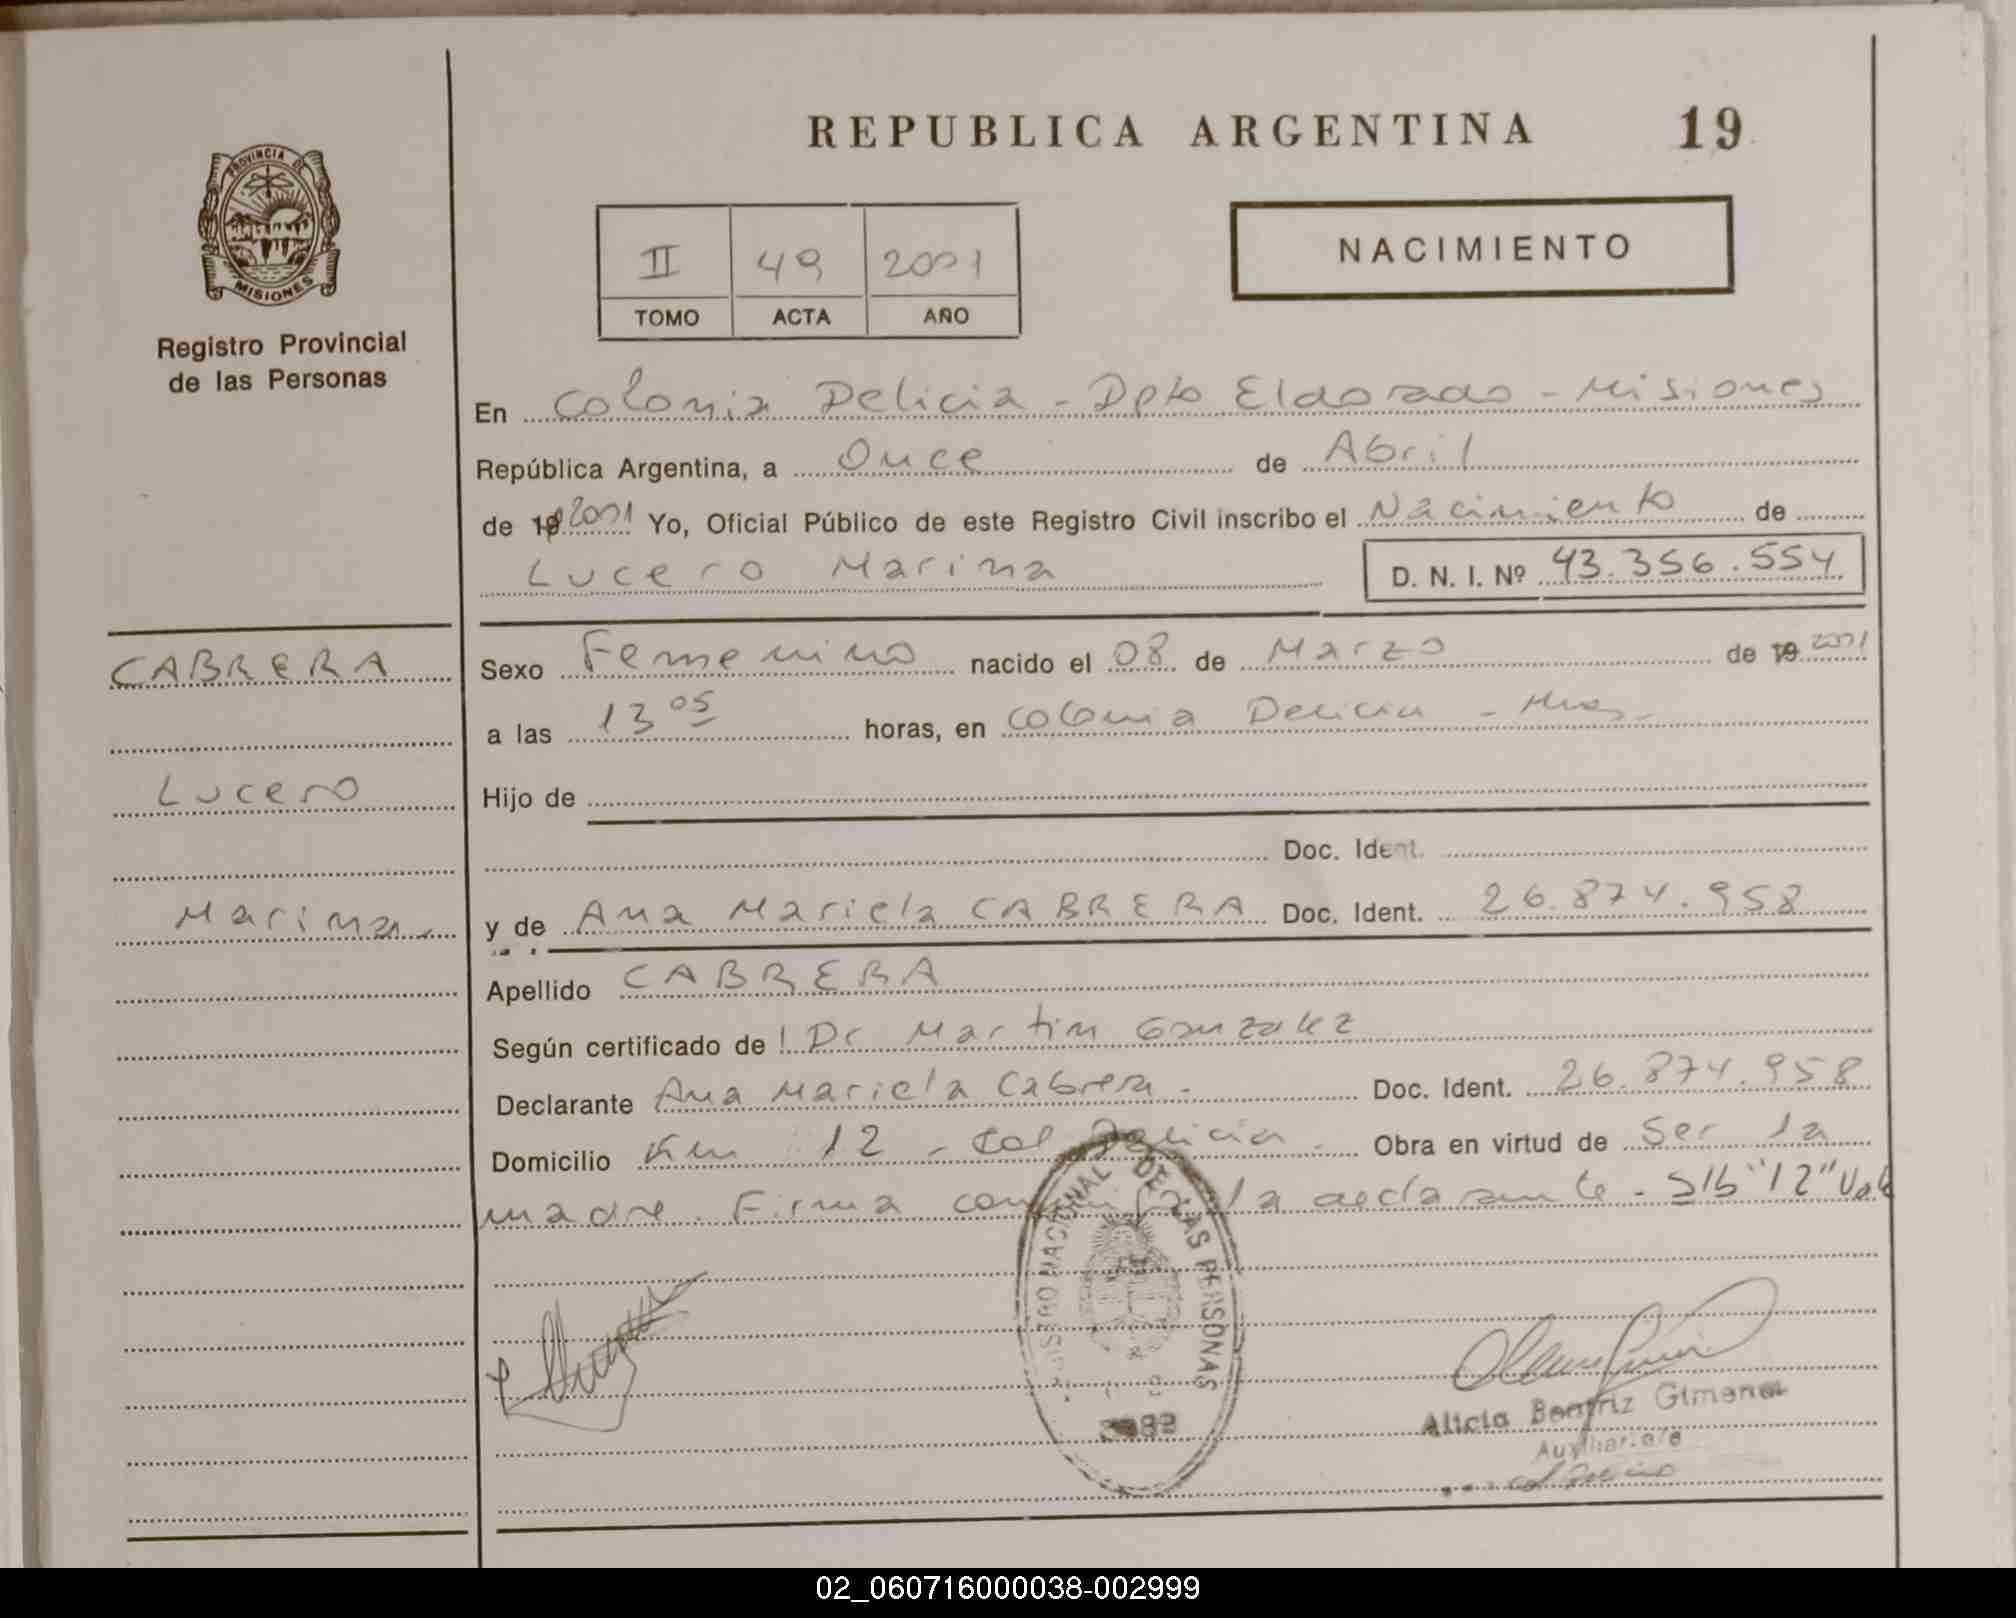 REPUBLICA ARGENTINA 19
PROVINCIA DE
MISIONES
Registro Provincial
de las Personas
II 49 2001
TOMO ACTA AÑO
NACIMIENTO
En Colonia Delicia - Dpto Eldorado - Misiones
República Argentina, a Once de Abril
de 19 2001 Yo, Oficial Público de este Registro Civil inscribo el Nacimiento de
Lucero Marina D. N. I. Nº 43.356.554
CABRERA
Lucero
Marina.
Sexo Femenino nacido el 08 de Marzo de 19 2001
a las 13 05 horas, en Colonia Delicia - Mnes.
Hijo de
Doc. Ident.
y de Ana Mariela CABRERA Doc. Ident. 26.874.958
Apellido CABRERA
Según certificado de Dr Martin Gonzalez
Declarante Ana Mariela Cabrera. Doc. Ident. 26.874.958
Domicilio Km 12 - Col Delicia. Obra en virtud de Ser la
madre. Firma la declarante - S/b "12" Vale
REGISTRO NACIONAL DE LAS PERSONAS
Alicia Beatriz Gimenez
Auxiliar
02_060716000038-002999